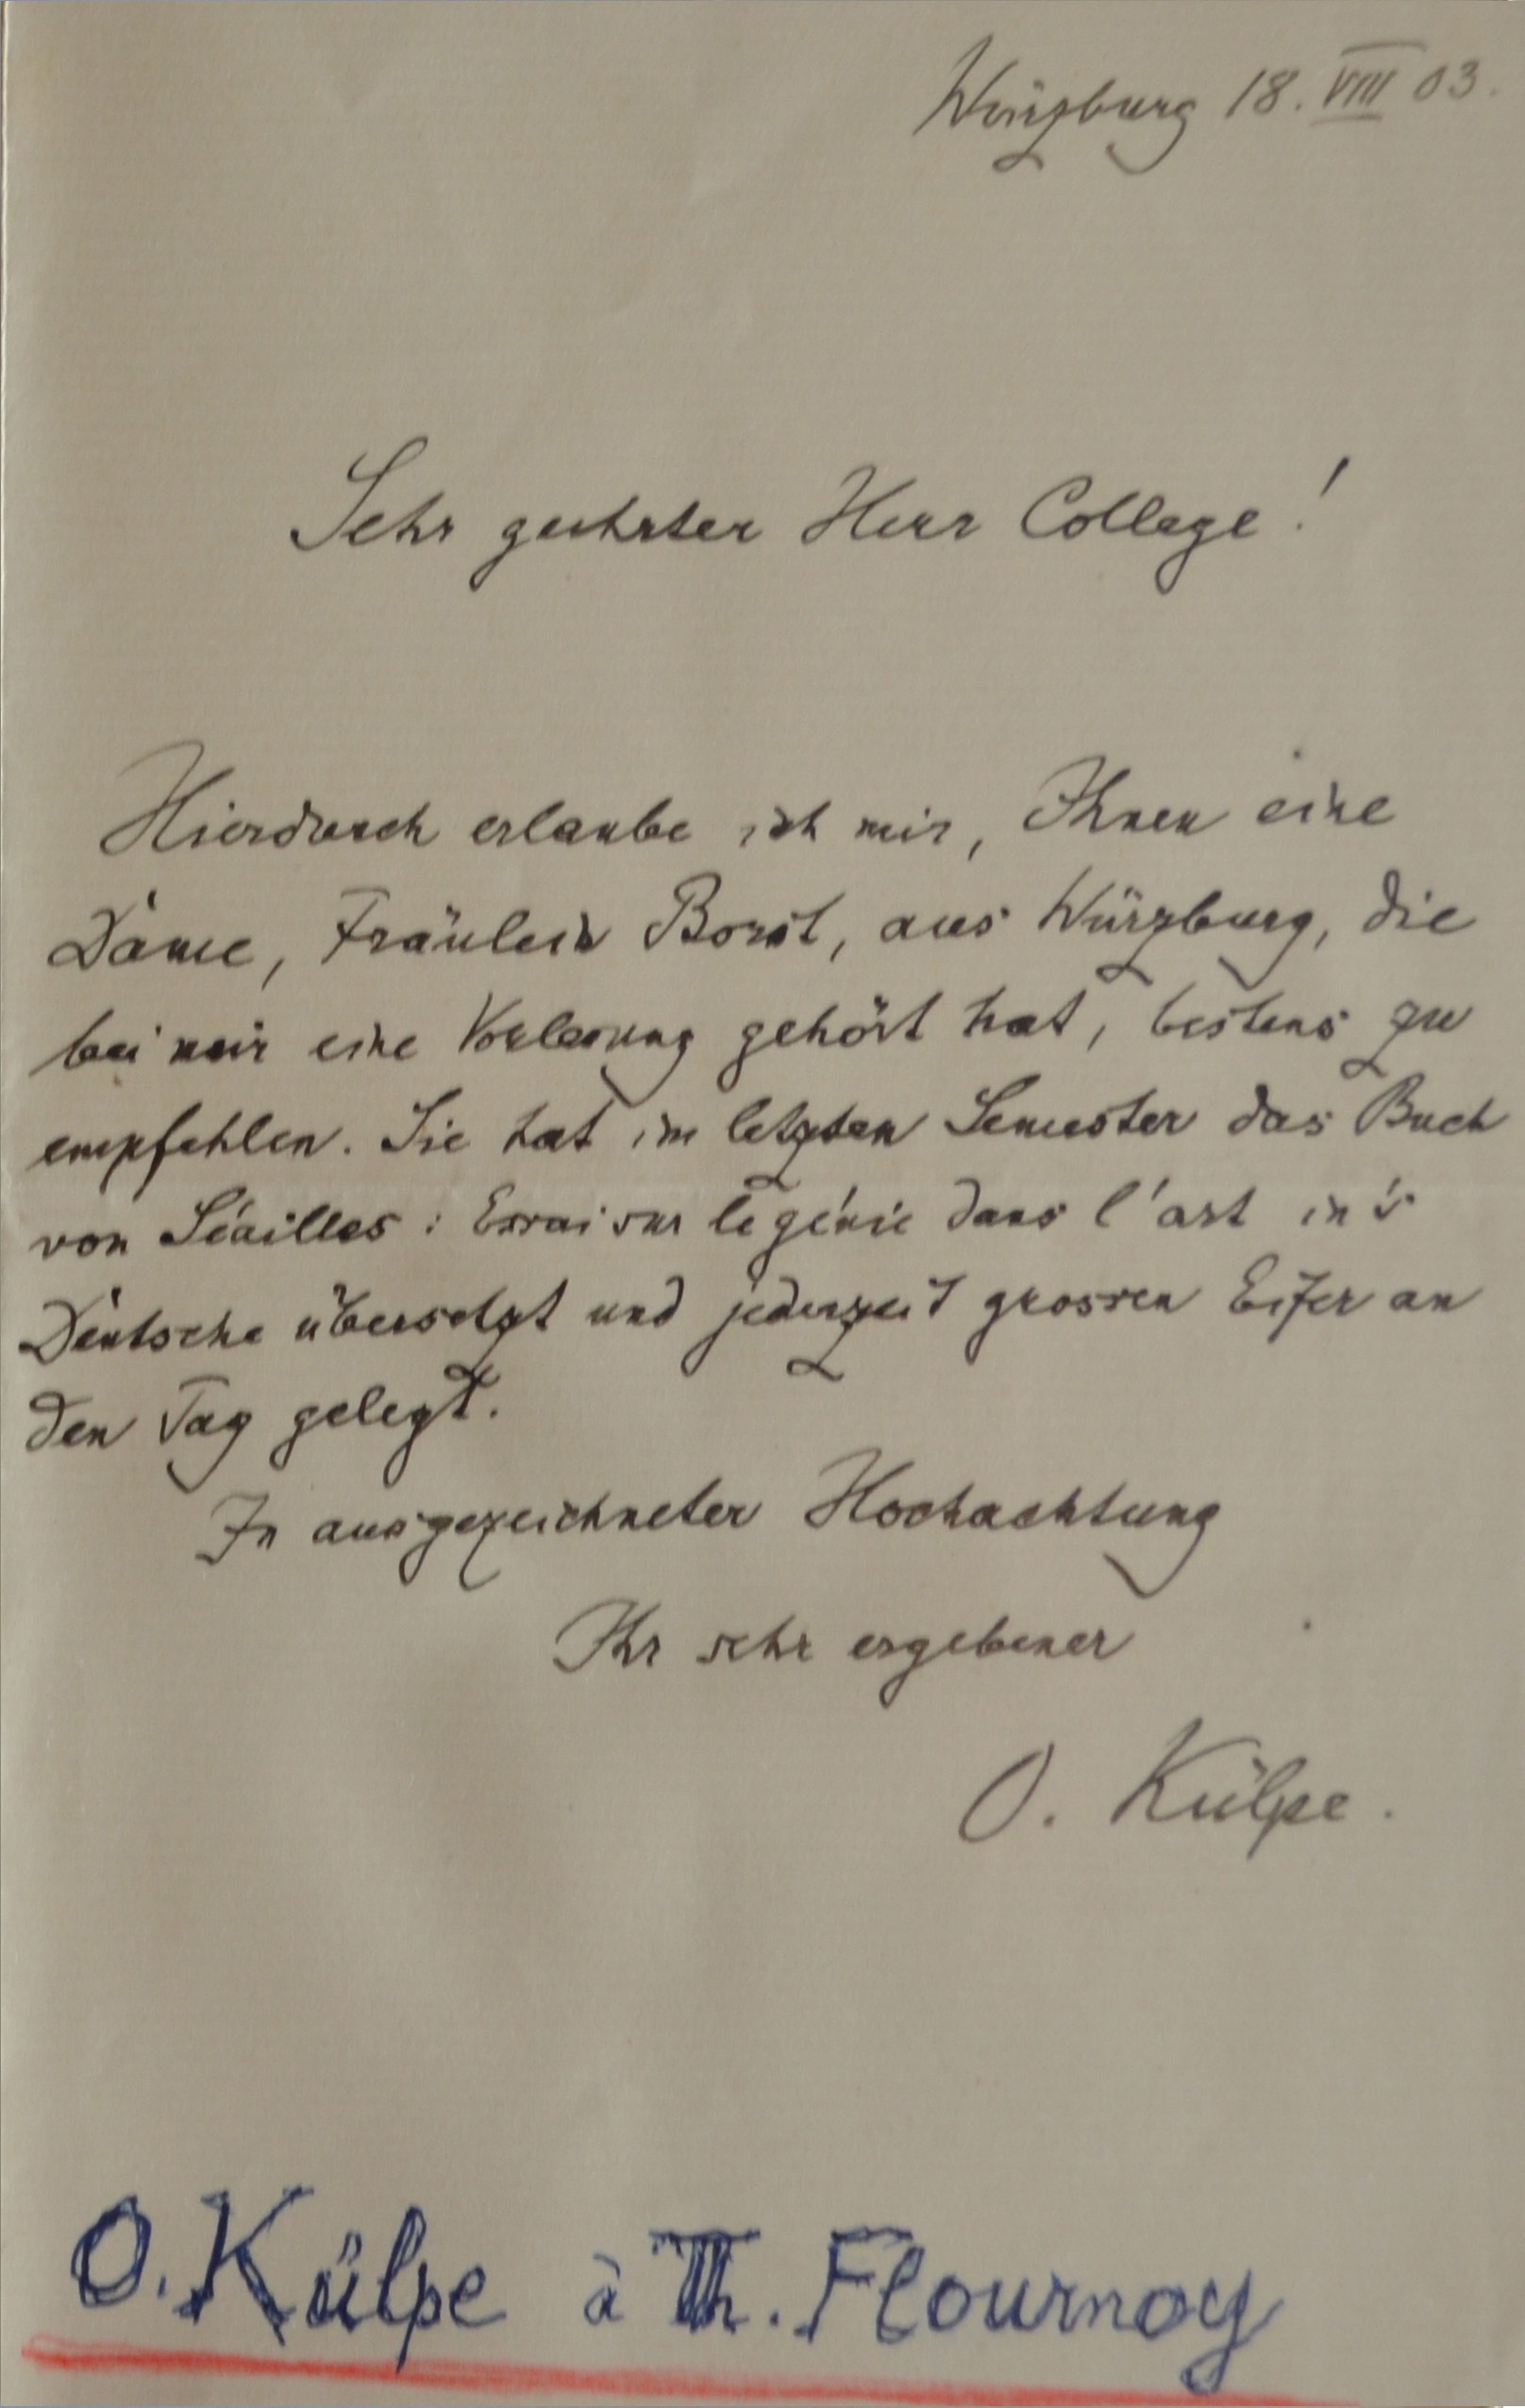 Würzburg 18. VIII 03.
Sehr geehrter Herr College!
Hierdurch erlaube ich mir, Ihnen eine
Dame, Fräulein Borst, aus Würzburg, die
bei mir eine Vorlesung gehört hat, bestens zu
empfehlen. Sie hat im letzten Semester das Buch
von Séailles: Essai sur le génie dans l'art in's
Deutsche übersetzt und jederzeit grossen Eifer an
den Tag gelegt.
In ausgezeichneter Hochachtung
Ihr sehr ergebener
O. Külpe.
O. Külpe à Th. Flournoy